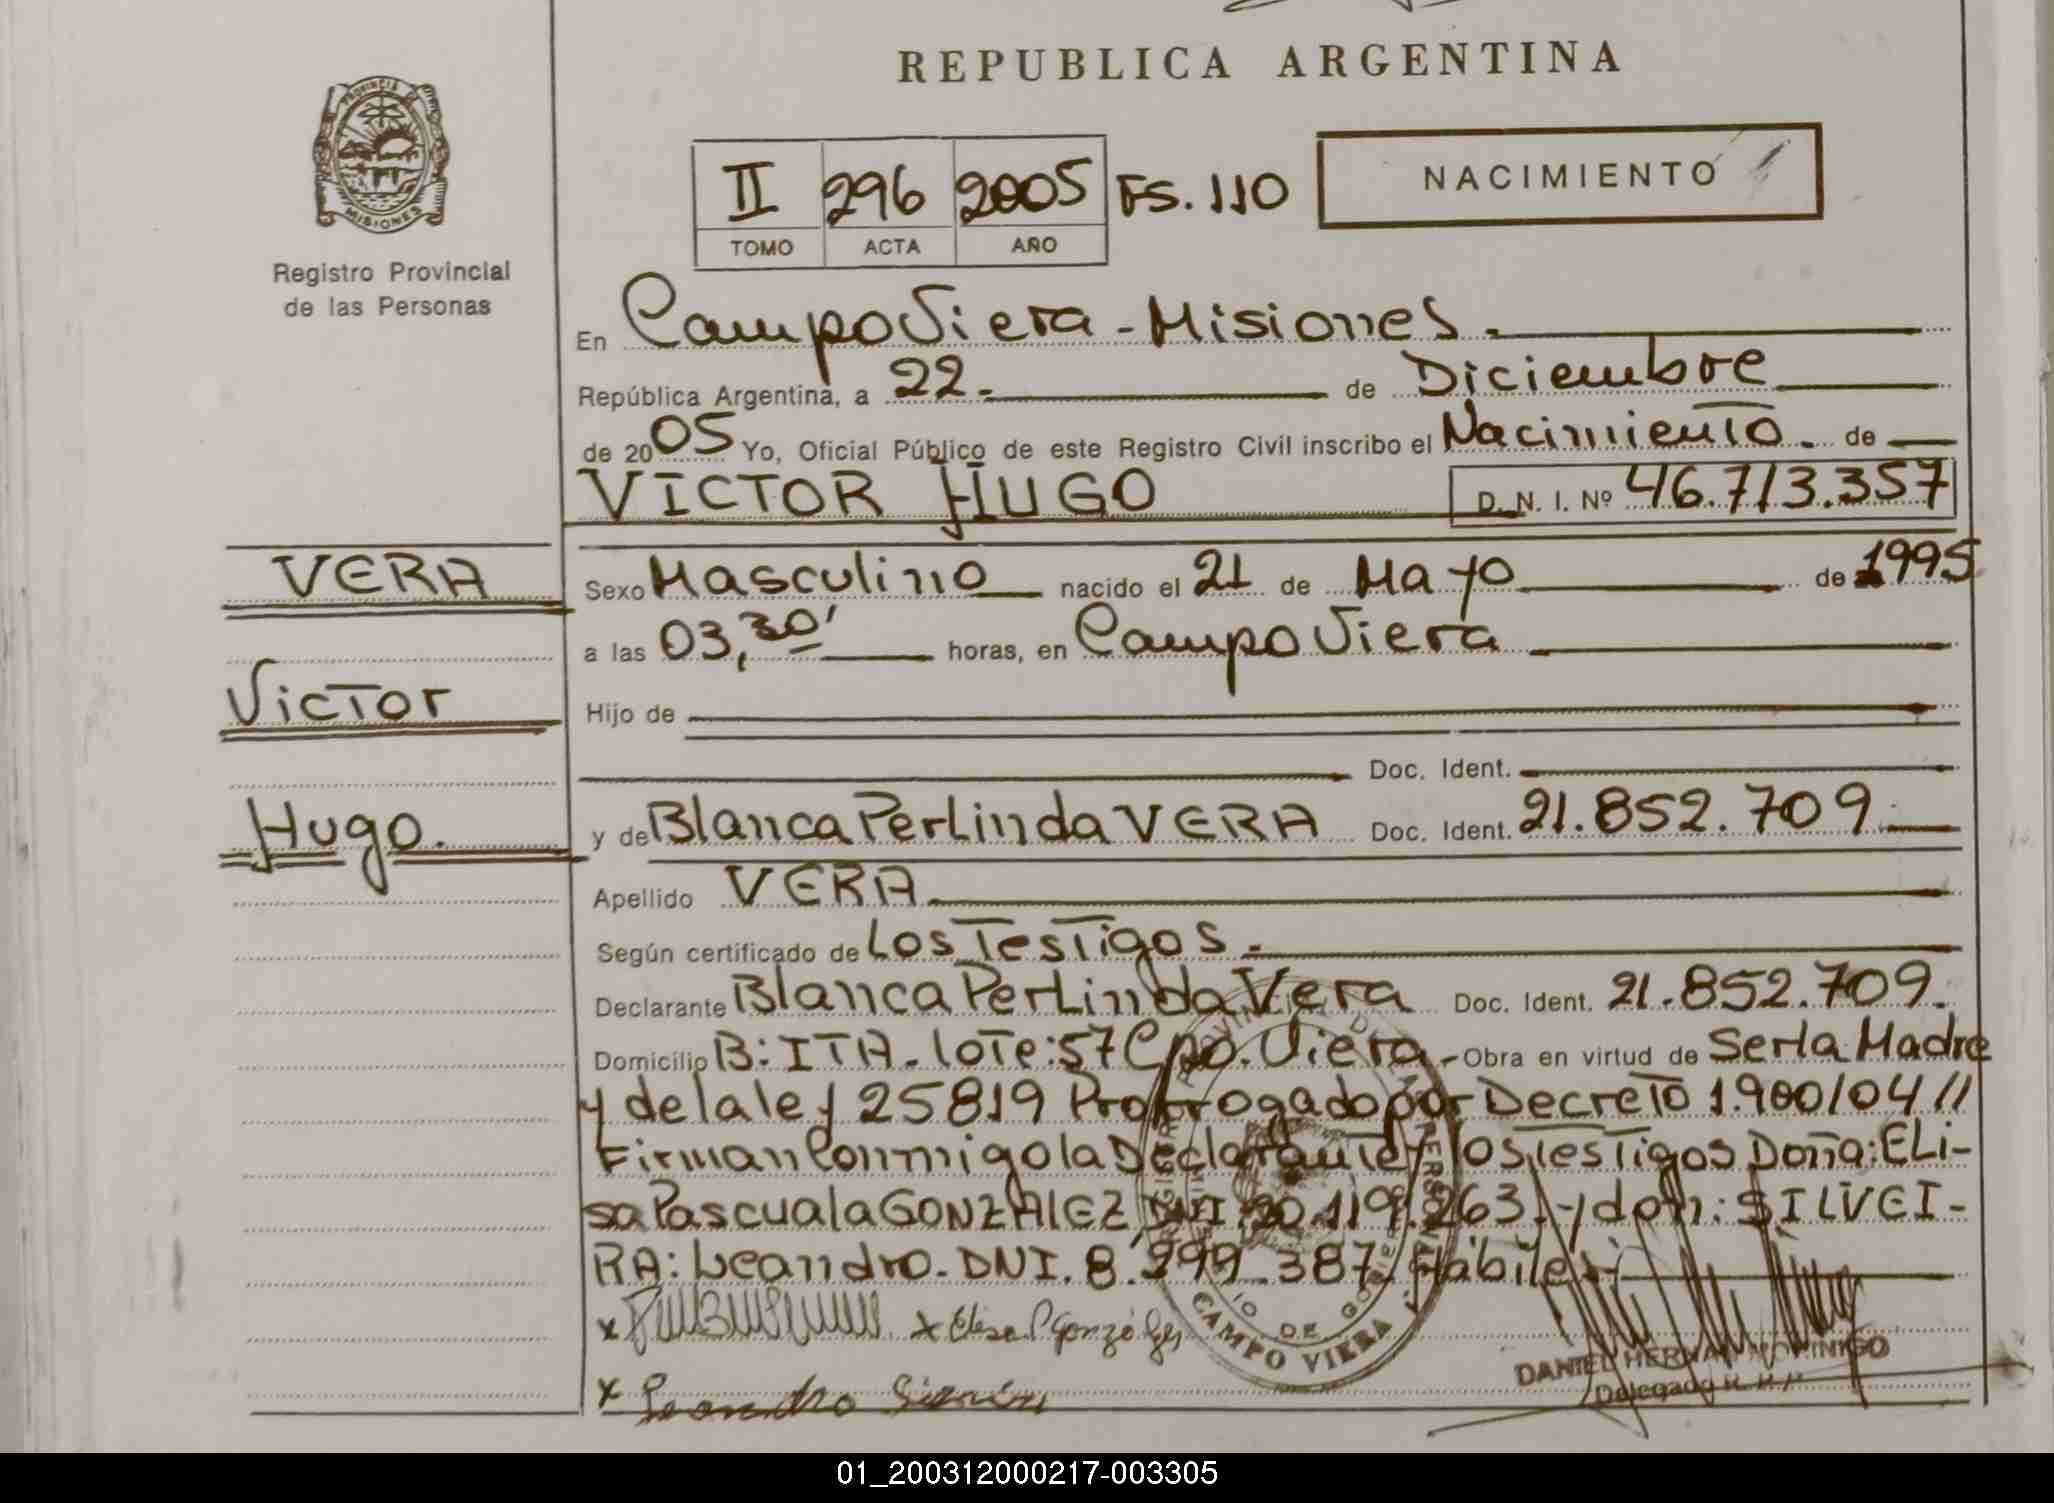 REPUBLICA ARGENTINA
PROVINCIA DE
MISIONES
Registro Provincial
de las Personas
II 296 2005 FS. 110
TOMO ACTA AÑO
NACIMIENTO
En Campo Viera - Misiones.
República Argentina, a 22. de Diciembre
de 2005 Yo, Oficial Público de este Registro Civil inscribo el Nacimiento. de
VICTOR HUGO D. N. I. Nº 46.713.357
VERA
Victor
Hugo.
Sexo Masculino nacido el 21 de Mayo de 1995
a las 03,30' horas, en Campo Viera
Hijo de
Doc. Ident.
y de Blanca Perlinda VERA Doc. Ident. 21.852.709
Apellido VERA
Según certificado de Los Testigos.
Declarante Blanca Perlinda Vera Doc. Ident. 21.852.709.
Domicilio B: ITA. lote: 57 Cpo. Viera. Obra en virtud de Ser la Madre
y de la ley 25819 Prorrogado por Decreto 1.900/04 //
Firman Conmigo la Declarante y los Testigos Doña: ELi-
sa Pascuala GONZALEZ DNI. 20.119.263. y don: SILVEI-
RA: Leandro. DNI. 8.299.387 Hábiles
x x Elisa P González
x Leandro
CAMPO VIERA
DANIEL HERNAN MORINIGO
Delegado R.P.P.
01_200312000217-003305